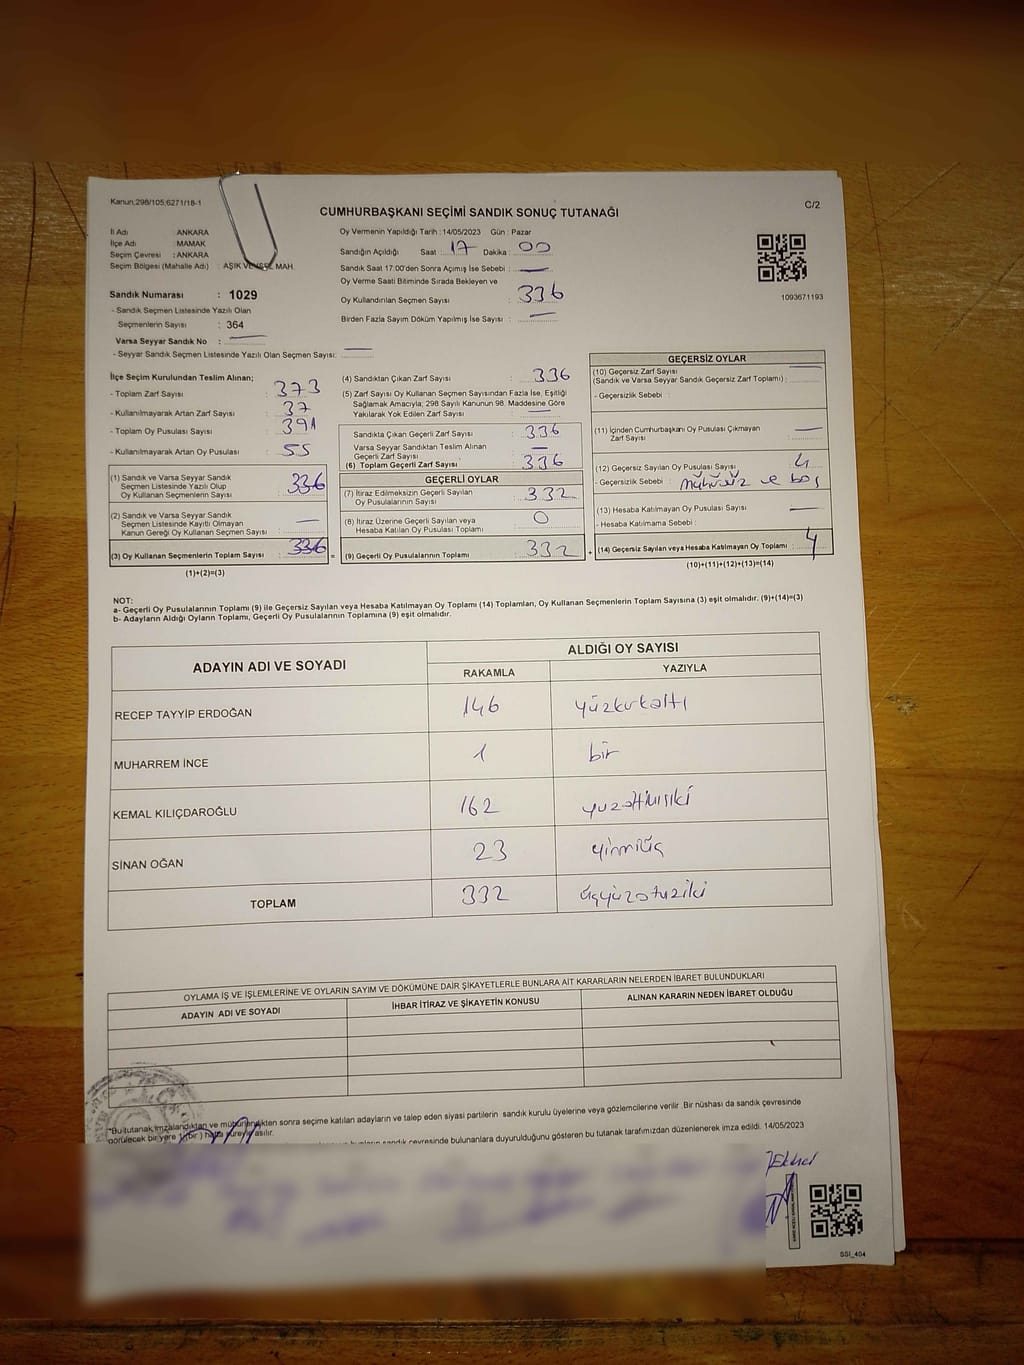 Kanun,298/105;6271/18-1
C/2
CUMHURBAŞKANI SEÇİMİ SANDIK SONUÇ TUTANAĞI
İl Adı : ANKARA
İlçe Adı : MAMAK
Seçim Çevresi : ANKARA
Seçim Bölgesi (Mahalle Adı) : AŞIK VEYSEL MAH.
Sandık Numarası : 1029
- Sandık Seçmen Listesinde Yazılı Olan
Seçmenlerin Sayısı : 364
Varsa Seyyar Sandık No :
- Seyyar Sandık Seçmen Listesinde Yazılı Olan Seçmen Sayısı:
Oy Vermenin Yapıldığı Tarih : 14/05/2023 Gün : Pazar
Sandığın Açıldığı Saat : 17 Dakika : 00
Sandık Saat 17.00'den Sonra Açımış İse Sebebi :
Oy Verme Saati Bitiminde Sırada Bekleyen ve
Oy Kullandırılan Seçmen Sayısı : 336
Birden Fazla Sayım Döküm Yapılmış İse Sayısı :
1093671193
İlçe Seçim Kurulundan Teslim Alınan;
- Toplam Zarf Sayısı : 373
- Kullanılmayarak Artan Zarf Sayısı : 37
- Toplam Oy Pusulası Sayısı : 391
- Kullanılmayarak Artan Oy Pusulası : 55
(1) Sandık ve Varsa Seyyar Sandık
Seçmen Listesinde Yazılı Olup
Oy Kullanan Seçmenlerin Sayısı : 336
(2) Sandık ve Varsa Seyyar Sandık
Seçmen Listesinde Kayıtlı Olmayan
Kanun Gereği Oy Kullanan Seçmen Sayısı :
(3) Oy Kullanan Seçmenlerin Toplam Sayısı : 336
(1)+(2)=(3)
(4) Sandıktan Çıkan Zarf Sayısı : 336
(5) Zarf Sayısı Oy Kullanan Seçmen Sayısından Fazla İse, Eşitliği
Sağlamak Amacıyla; 298 Sayılı Kanunun 98. Maddesine Göre
Yakılarak Yok Edilen Zarf Sayısı :
Sandıkta Çıkan Geçerli Zarf Sayısı : 336
Varsa Seyyar Sandıktan Teslim Alınan
Geçerli Zarf Sayısı :
(6) Toplam Geçerli Zarf Sayısı : 336
GEÇERLİ OYLAR
(7) İtiraz Edilmeksizin Geçerli Sayılan
Oy Pusulalarının Sayısı : 332
(8) İtiraz Üzerine Geçerli Sayılan veya
Hesaba Katılan Oy Pusulası Toplamı : 0
= (9) Geçerli Oy Pusulalarının Toplamı : 332
GEÇERSİZ OYLAR
(10) Geçersiz Zarf Sayısı
(Sandık ve Varsa Seyyar Sandık Geçersiz Zarf Toplamı) :
- Geçersizlik Sebebi :
(11) İçinden Cumhurbaşkanı Oy Pusulası Çıkmayan
Zarf Sayısı :
(12) Geçersiz Sayılan Oy Pusulası Sayısı : 4
- Geçersizlik Sebebi : mühürsüz ve boş
(13) Hesaba Katılmayan Oy Pusulası Sayısı :
- Hesaba Katılmama Sebebi :
+ (14) Geçersiz Sayılan veya Hesaba Katılmayan Oy Toplamı : 4
(10)+(11)+(12)+(13)=(14)
NOT:
a- Geçerli Oy Pusulalarının Toplamı (9) ile Geçersiz Sayılan veya Hesaba Katılmayan Oy Toplamı (14) Toplamları, Oy Kullanan Seçmenlerin Toplam Sayısına (3) eşit olmalıdır. (9)+(14)=(3)
b- Adayların Aldığı Oyların Toplamı, Geçerli Oy Pusulalarının Toplamına (9) eşit olmalıdır.
ADAYIN ADI VE SOYADI ALDIĞI OY SAYISI
RAKAMLA YAZIYLA
RECEP TAYYİP ERDOĞAN 146 yüzkırkaltı
MUHARREM İNCE 1 bir
KEMAL KILIÇDAROĞLU 162 yüzaltmışiki
SİNAN OĞAN 23 yirmiüç
TOPLAM 332 üçyüzotuziki
OYLAMA İŞ VE İŞLEMLERİNE VE OYLARIN SAYIM VE DÖKÜMÜNE DAİR ŞİKAYETLERLE BUNLARA AİT KARARLARIN NELERDEN İBARET BULUNDUKLARI
ADAYIN ADI VE SOYADI İHBAR İTİRAZ VE ŞİKAYETİN KONUSU ALINAN KARARIN NEDEN İBARET OLDUĞU
"Bu tutanak imzalandıktan ve mühürlendikten sonra seçime katılan adayların ve talep eden siyasi partilerin sandık kurulu üyelerine veya gözlemcilerine verilir .Bir nüshası da sandık çevresinde
görülecek bir yere 1 (bir ) hafta süreyle asılır.
sandık çevresinde bulunanlara duyurulduğunu gösteren bu tutanak tarafımızdan düzenlenerek imza edildi. 14/05/2023
SSI_404